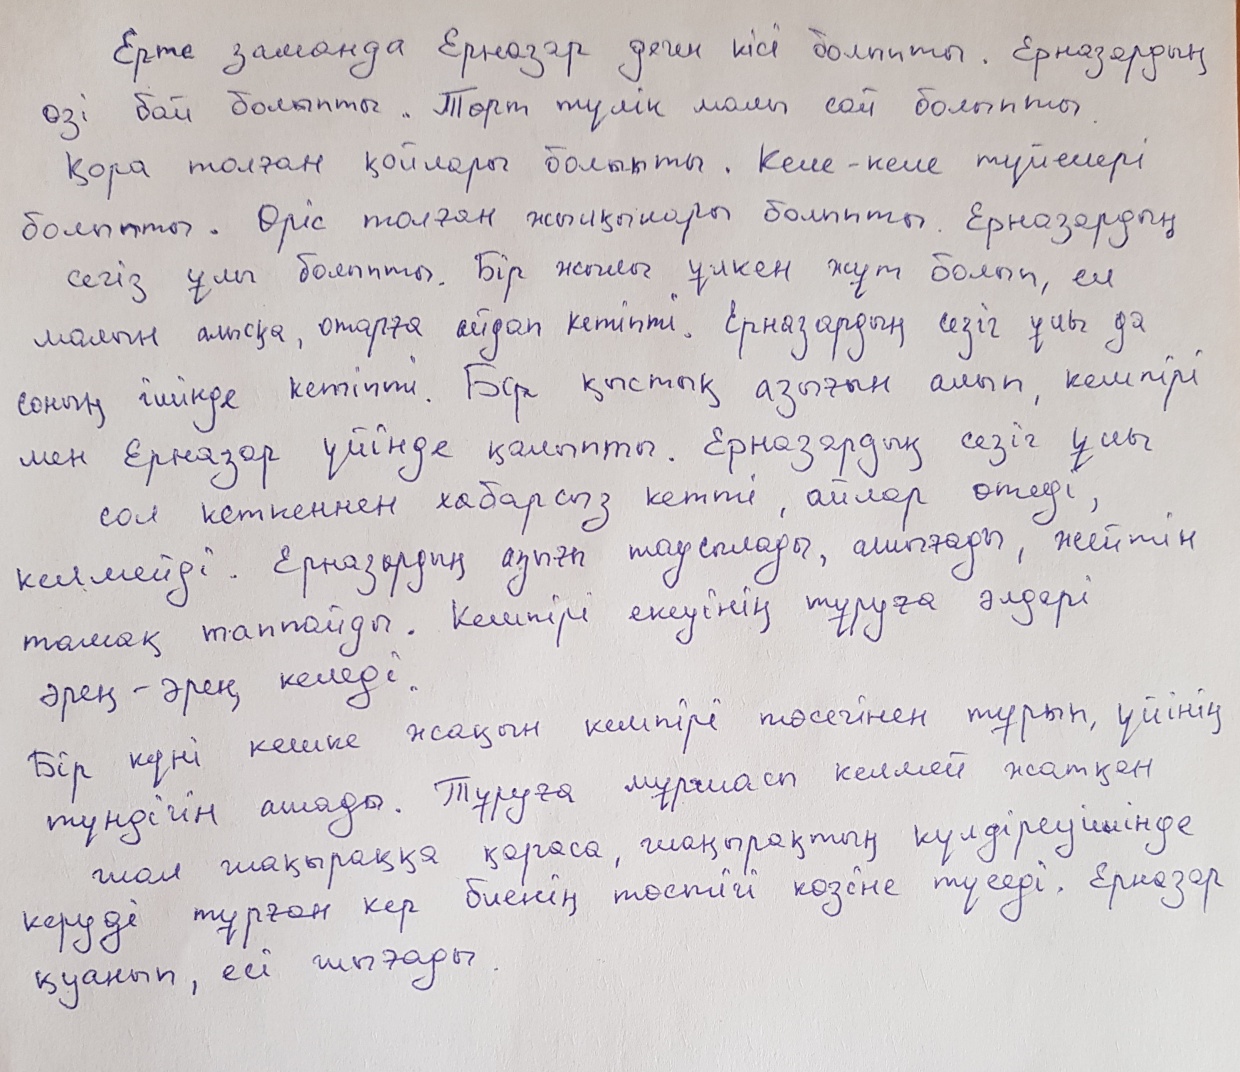 Ерте заманда Ерназар деген кісі болыпты. Ерназардың
өзі бай болыпты. Төрт түлік малы сай болыпты.
Қора толған қойлары болыпты. Келе-келе түйелері
болыпты. Өріс толған жылқылары болыпты. Ерназардың
сегіз ұлы болыпты. Бір жылы үлкен жұт болып, ел
малын алысқа, отарға айдап кетіпті. Ерназардың сегіз ұлы да
соның ішінде кетіпті. Бір қыстық азығын алып, кемпірі
мен Ерназар үйінде қалыпты. Ерназардың сегіз ұлы
сол кеткеннен хабарсыз кетті, айлар өтеді,
келмейді. Ерназардың азығы таусылады, ашығады, жейтін
тамақ таппайды. Кемпірі екеуінің тұруға әлдері
әрең-әрең келеді.
Бір күні кешке жақын кемпірі төсегінен тұрып, үйінің
түндігін ашады. Тұруға мұршасы келмей жатқан
шал шаңыраққа қараса, шаңырақтың күлдіреуішінде
керулі тұрған кер биенің төстігі көзіне түседі. Ерназар
қуанып, есі шығады.